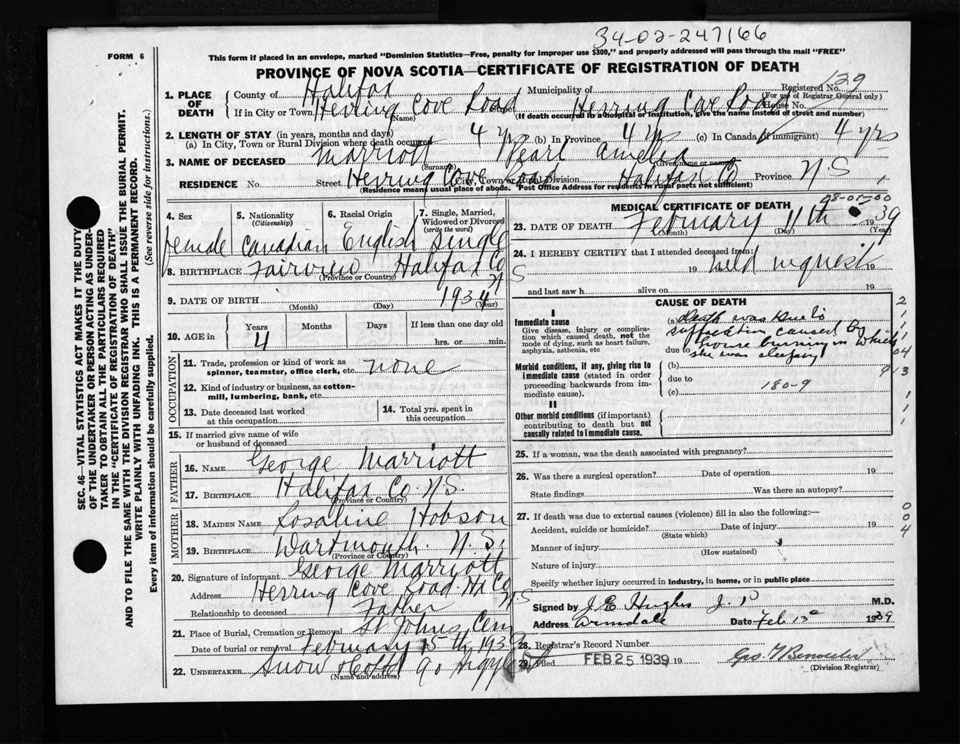 34-02-247166
FORM 6
This form if placed in an envelope, marked "Dominion Statistics—Free, penalty for improper use $300," and properly addressed will pass through the mail "FREE"
PROVINCE OF NOVA SCOTIA—CERTIFICATE OF REGISTRATION OF DEATH
129
1. PLACE OF DEATH
County of Halifax Municipality of Registered No.
(For use of Registrar General only)
If in City or Town Herring Cove Road Herring Cove Road House No.
(Name) (If death occurred in a hospital or institution, give the name instead of street and number)
2. LENGTH OF STAY (in years, months and days)
(a) In City, Town or Rural Division where death occurred 4 yrs (b) In Province 4 yrs (c) In Canada (if immigrant) 4 yrs
3. NAME OF DECEASED Marriott Pearl Amelia
(Surname) (Given name or names)
RESIDENCE No. Street Herring Cove Road City, Town or Rural Division Halifax Co Province N S
(Residence means usual place of abode. Post Office Address for residents in rural parts not sufficient)
4. Sex 5. Nationality (Citizenship) 6. Racial Origin 7. Single, Married, Widowed or Divorced (write the word)
female Canadian English Single
8. BIRTHPLACE Fairview Halifax Co N S
(Province or Country)
9. DATE OF BIRTH 1934
(Month) (Day) (Year)
10. AGE in Years Months Days If less than one day old
4 hrs. or min.
OCCUPATION
11. Trade, profession or kind of work as spinner, teamster, office clerk, etc. none
12. Kind of industry or business, as cotton-mill, lumbering, bank, etc.
13. Date deceased last worked at this occupation 14. Total yrs. spent in this occupation
15. If married give name of wife or husband of deceased
FATHER
16. NAME George Marriott
17. BIRTHPLACE Halifax Co. N.S.
(Province or Country)
MOTHER
18. MAIDEN NAME Rosaline Hobson
19. BIRTHPLACE Dartmouth N.S.
(Province or Country)
20. Signature of informant George Marriott
Address Herring Cove Road Hx Co N S
Relationship to deceased Father
21. Place of Burial, Cremation or Removal St Johns Cem
Date of burial or removal February 15th 1939
22. UNDERTAKER Snow & Co Ltd 90 Argyle St
(Name and address)
MEDICAL CERTIFICATE OF DEATH
23. DATE OF DEATH February 11th 1939
(Month) (Day) (Year)
24. I HEREBY CERTIFY that I attended deceased from:
19 held inquest 19
and last saw h alive on 19
CAUSE OF DEATH
I
Immediate cause
Give disease, injury or complication which caused death, not the mode of dying, such as heart failure, asphyxia, asthenia, etc
(a) death was due to
suffocation caused by
due to house burning in which
she was sleeping
Morbid conditions, if any, giving rise to immediate cause (stated in order proceeding backwards from immediate cause).
(b)
due to
(c) 180-9
II
Other morbid conditions (if important) contributing to death but not causally related to immediate cause.
25. If a woman, was the death associated with pregnancy?
26. Was there a surgical operation? Date of operation 19
State findings Was there an autopsy?
27. If death was due to external causes (violence) fill in also the following:—
Accident, suicide or homicide? Date of injury 19
(State which)
Manner of injury
(How sustained)
Nature of injury
Specify whether injury occurred in industry, in home, or in public place
Signed by J E Hughes J. P M.D.
Address Armdale Date Feb 13 1939
28. Registrar's Record Number
29. Filed FEB 25 1939 19
(Division Registrar)
SEC. 46—VITAL STATISTICS ACT MAKES IT THE DUTY
OF THE UNDERTAKER OR PERSON ACTING AS UNDER-
TAKER TO OBTAIN ALL THE PARTICULARS REQUIRED
IN THE "CERTIFICATE OF REGISTRATION OF DEATH"
AND TO FILE THE SAME WITH THE DIVISION REGISTRAR WHO SHALL ISSUE THE BURIAL PERMIT.
WRITE PLAINLY WITH UNFADING INK. THIS IS A PERMANENT RECORD.
Every item of information should be carefully supplied. (See reverse side for instructions.)